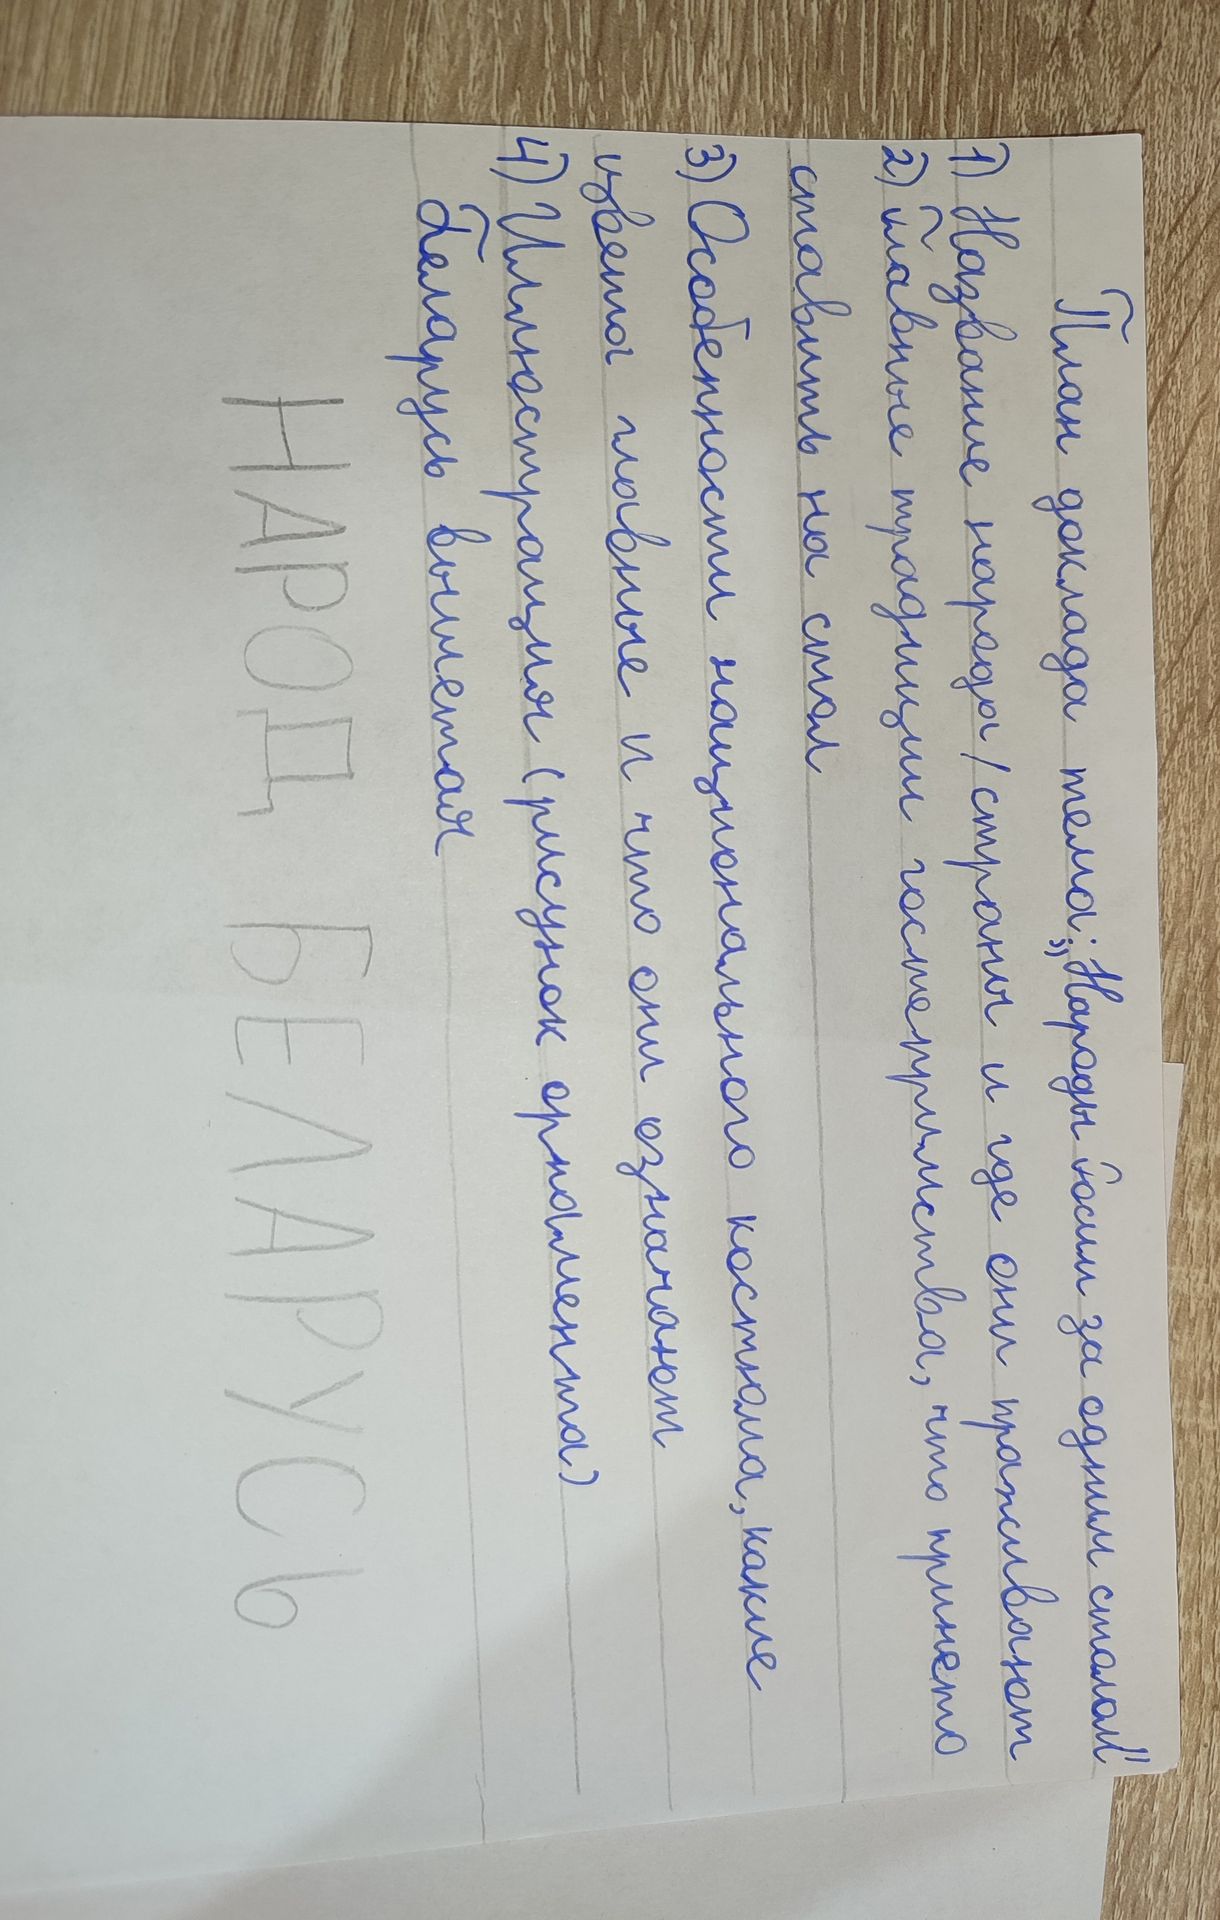 План доклада тема: „Народы России за одним столом"
1) Название народа/страны и где они проживают
2) Главные традиции гостеприимства, что принято
ставить на стол
3) Особенности национального костюма, какие
цвета главные и что они означают
4) Иллюстрация (рисунок орнамента)
Беларусь
НАРОД БЕЛАРУСЬ